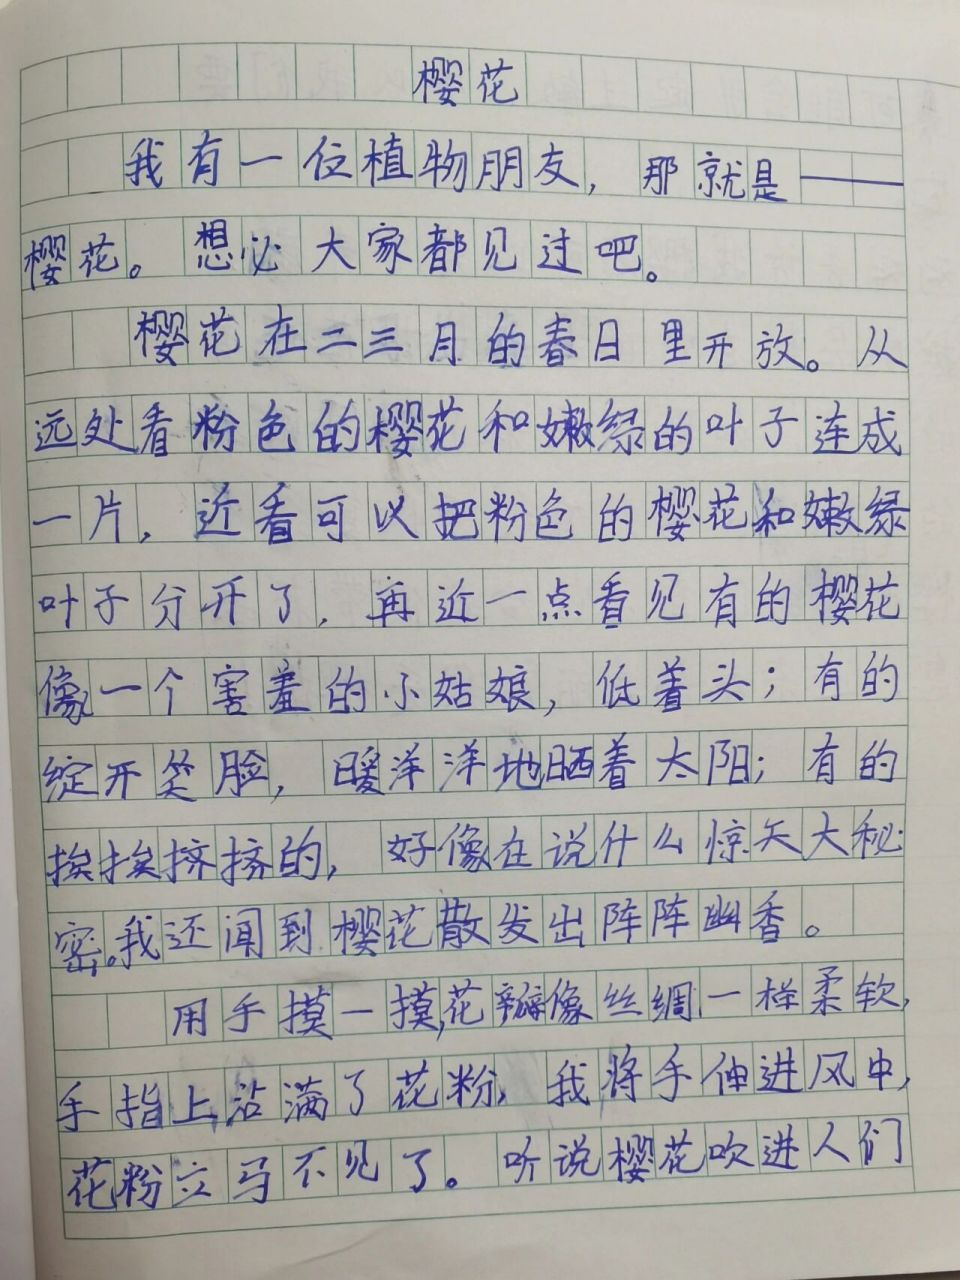 樱花
我有一位植物朋友，那就是——
樱花。想必大家都见过吧。
樱花在二三月的春日里开放。从
远处看粉色的樱花和嫩绿的叶子连成
一片，近看可以把粉色的樱花和嫩绿
叶子分开了，再近一点看见有的樱花
像一个害羞的小姑娘，低着头；有的
绽开笑脸，暖洋洋地晒着太阳；有的
挨挨挤挤的，好像在说什么惊天大秘
密。我还闻到樱花散发出阵阵幽香。
用手摸一摸，花瓣像丝绸一样柔软，
手指上沾满了花粉，我将手伸进风中，
花粉立马不见了。听说樱花吹进人们